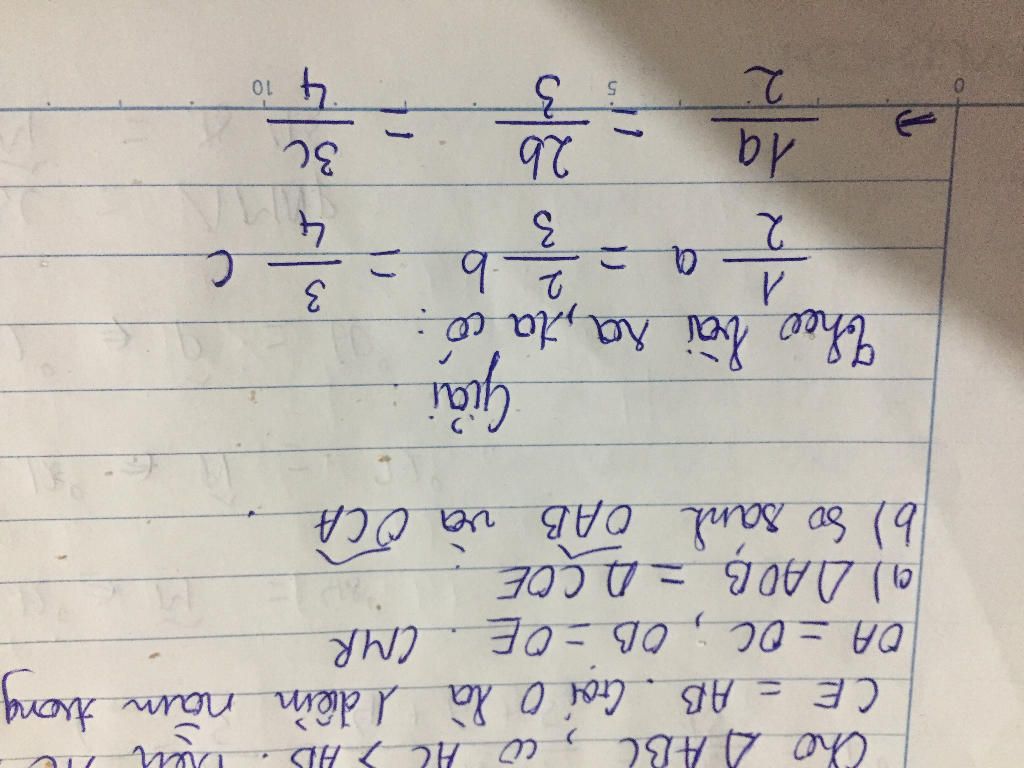 Cho △ABC, có AC > AB. Trên
CE = AB. Gọi O là 1 điểm nằm trong
OA = OC, OB = OE. CMR
a) △AOB = △COE
b) So sánh OAB và OCA.
Giải
Theo bài ra, ta có:
1/2 a = 2/3 b = 3/4 c
⇒ 1a/2 = 2b/3 = 3c/4
0 5 10